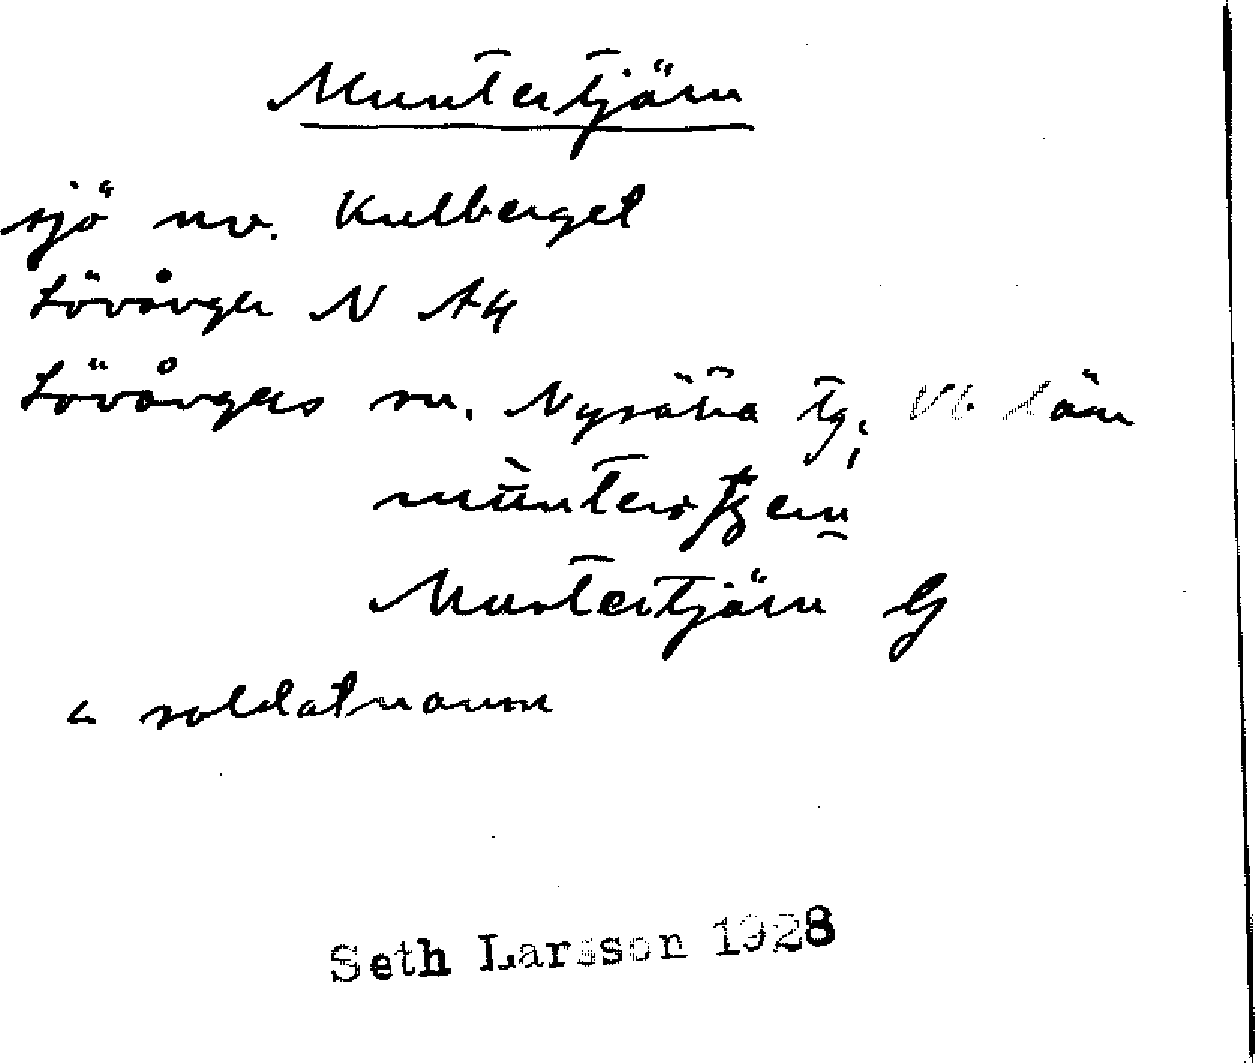 Muntertjärn
sjö nv. Kulberget
Lövånger N A4
Lövångers sn. Nysätra tg; Vb län
Muntertjärn G
< soldatnamn
Seth Larsson 1928